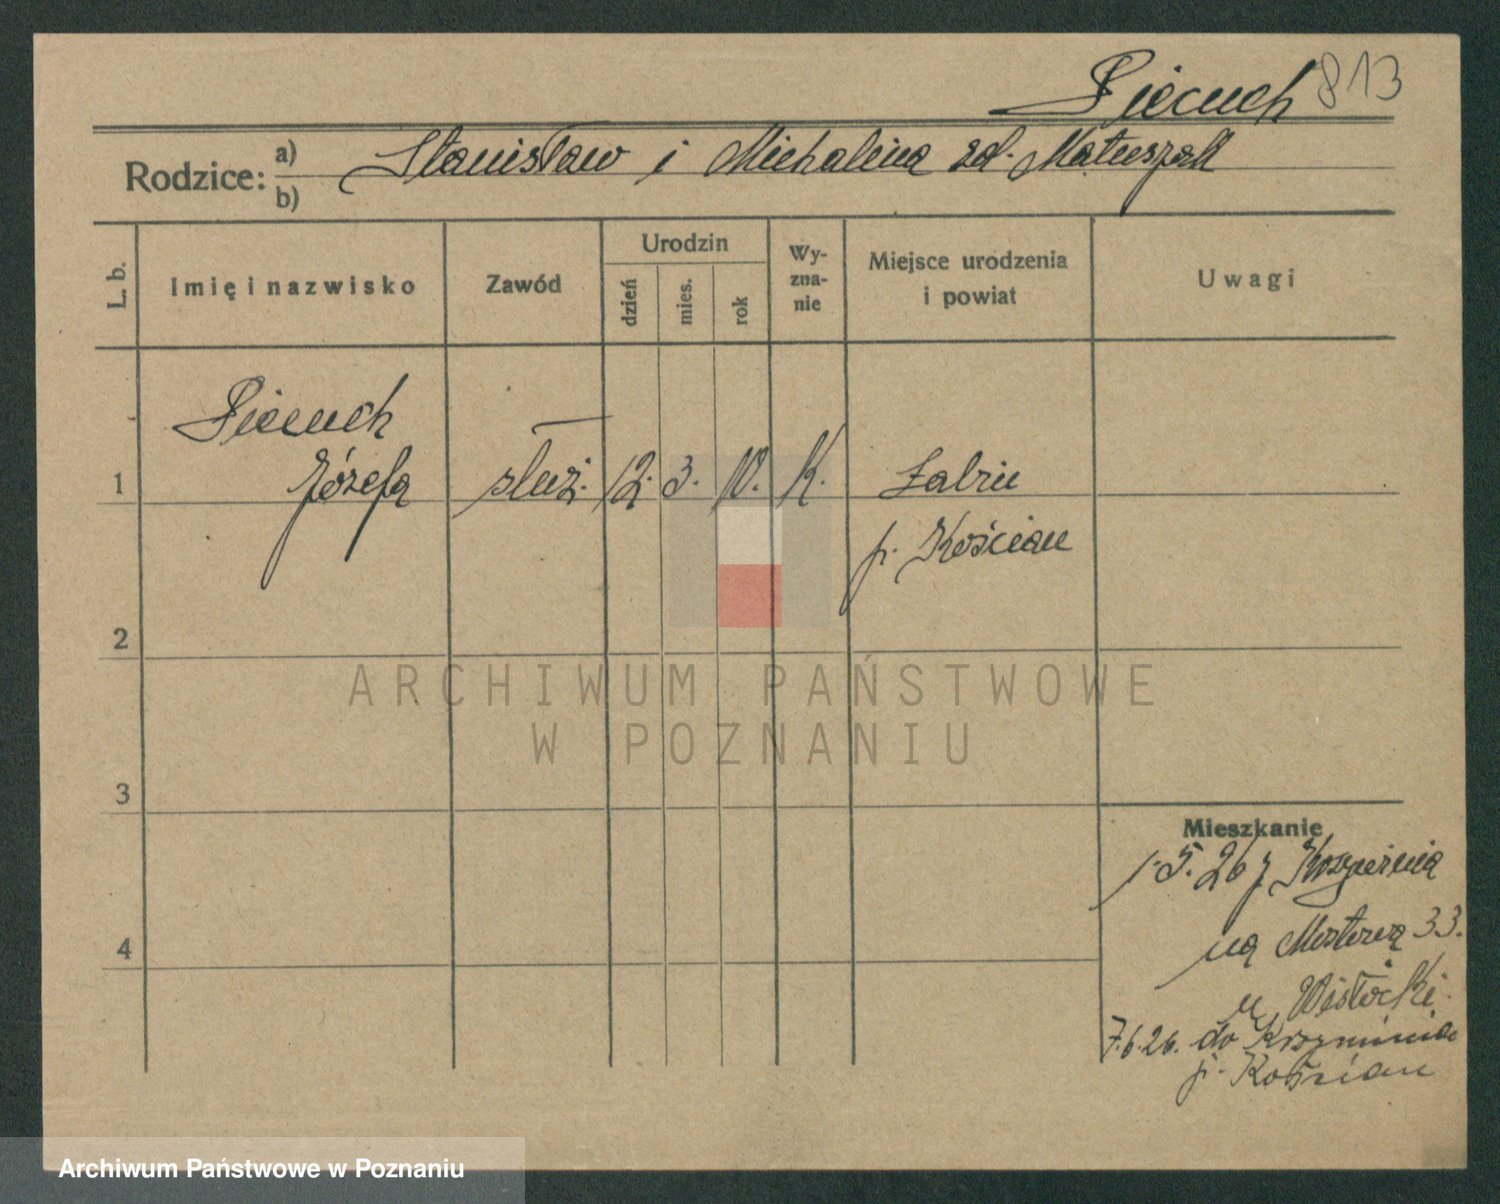 Piecuch 813
Rodzice: a) Stanisław i Michalina zd. Matuszak
b)
L. b.
Imię i nazwisko
Zawód
Urodzin
dzień
mies.
rok
Wy-
zna-
nie
Miejsce urodzenia
i powiat
Uwagi
Piecuch
1 Józefa służ. 12. 3. 10. K.
p. Kościan
2
ARCHIWUM PAŃSTWOWE
W POZNANIU
3
Mieszkanie
1.5.26 z
4
na Mostową 33.
u Wisłocki.
7.6.26. do
p. Kościan
Archiwum Państwowe w Poznaniu